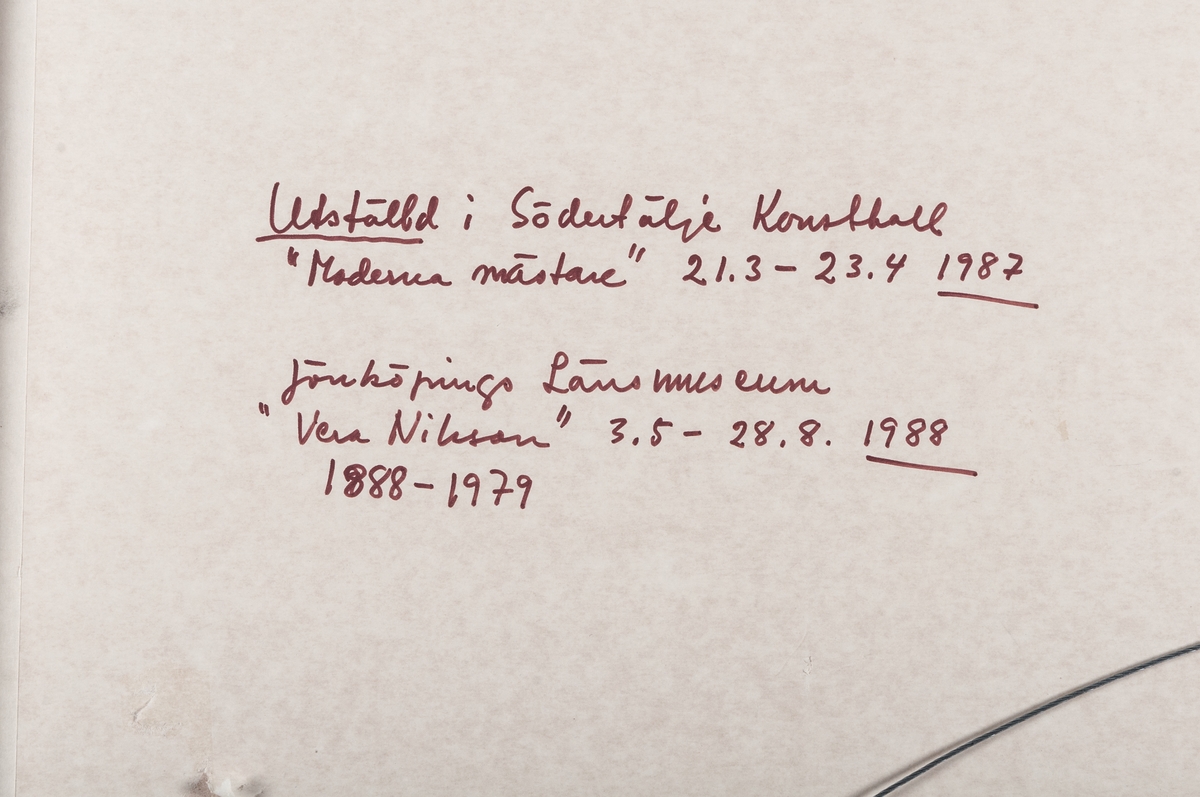 Utställd i Södertälje Konsthall
"Moderna mästare" 21.3 – 23.4 1987
Jönköpings Länsmuseum
"Vera Nilsson" 3.5 – 28.8. 1988
1888 – 1979